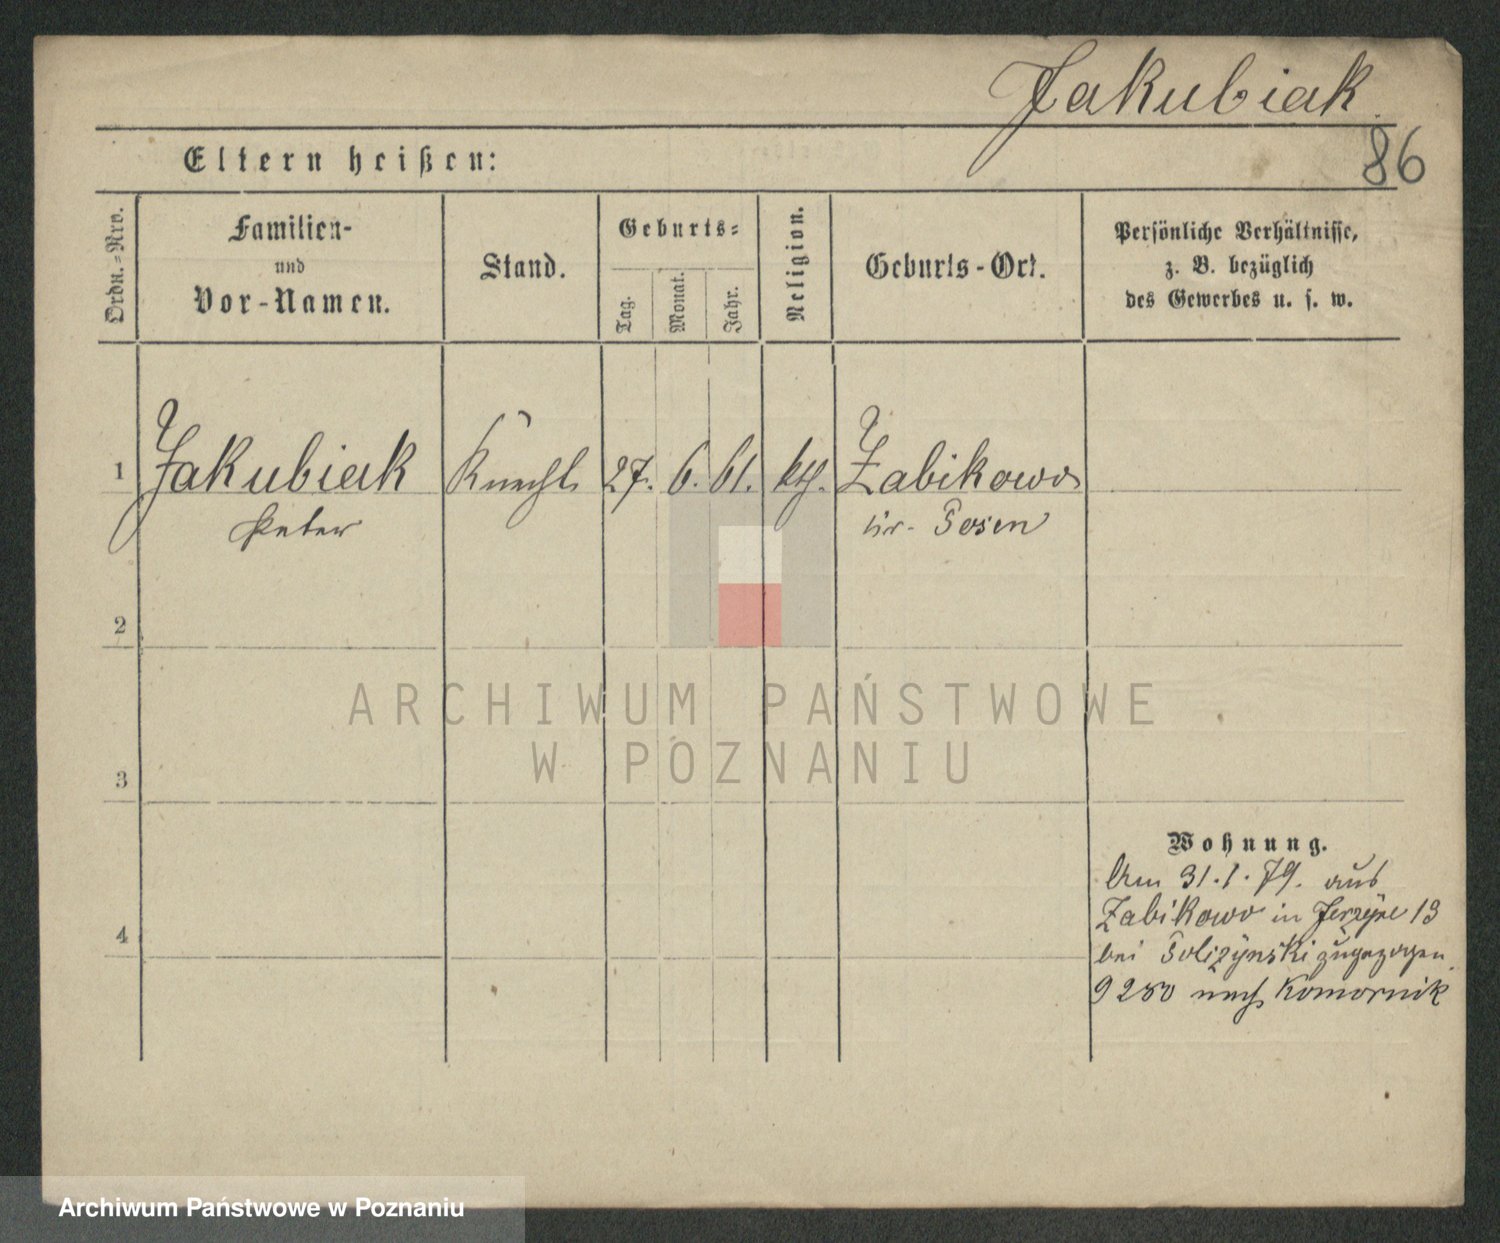 Jakubiak
86
Eltern heißen:
Ordn.-Nro.
Familien-
und
Vor-Namen.
Stand.
Geburts-
Tag.
Monat.
Jahr.
Religion.
Geburts-Ort.
Persönliche Verhältnisse,
z. B. bezüglich
des Gewerbes u. s. w.
1 Jakubiak Knecht 27. 6. 61. kth. Zabikowo
Peter Kr. Posen
2
ARCHIWUM PAŃSTWOWE
W POZNANIU
3
Wohnung.
Am 31.1.79. aus
Zabikowo in 13
4
bei zugezogen
9 2 80 nach Komornik
Archiwum Państwowe w Poznaniu